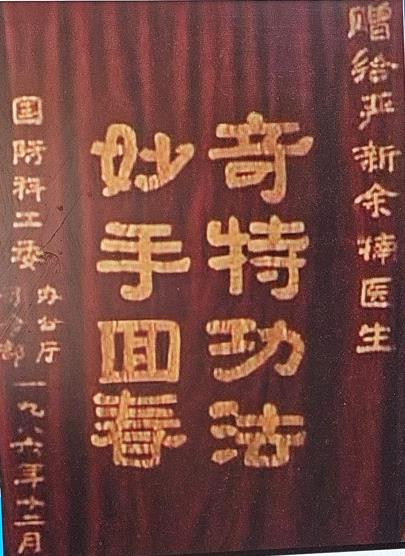 赠给严新余楠医生
奇特功法
妙手回春
国防科工委
办公厅
部
一九八六年十二月